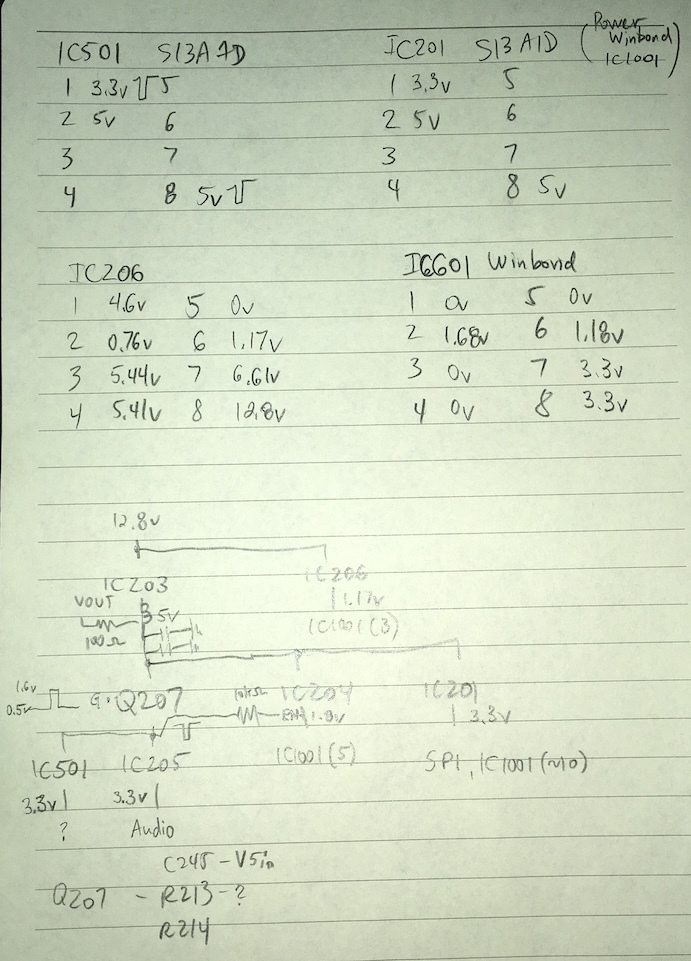 IC501 S13A AD IC201 S13 A1D (Power Winbond IC1001)
1 3.3v 5 1 3.3v 5
2 5v 6 2 5v 6
3 7 3 7
4 8 5v 4 8 5v
IC206 IC601 Winbond
1 4.6v 5 0v 1 0v 5 0v
2 0.76v 6 1.17v 2 1.68v 6 1.18v
3 5.44v 7 6.61v 3 0v 7 3.3v
4 5.41v 8 12.8v 4 0v 8 3.3v
12.8v
IC203 IC206
VOUT 5V 1.17v
100Ω IC1001(3)
1.6v
0.5v G·Q207 10kΩ IC204 IC201
EN 1.8v 3.3v
IC501 IC205 IC1001(5) SPI, IC1001(~10)
3.3v 3.3v
? Audio
C245 - V5in
Q207 - R213 - ?
R214